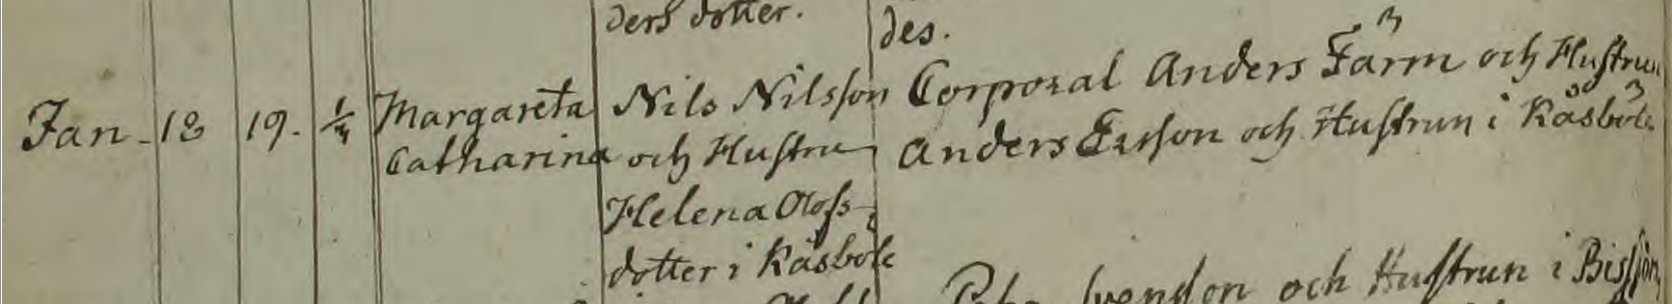 ders dotter.
des.
Jan. 18 19. 1/4 Margareta Nils Nilsson Corporal Anders Färm och Hustrun
Catharina och Hustru Anders Ersson och Hustrun i Råsböle
Helena Olofs-
dotter i Råsböle
och Hustrun i Bissjön